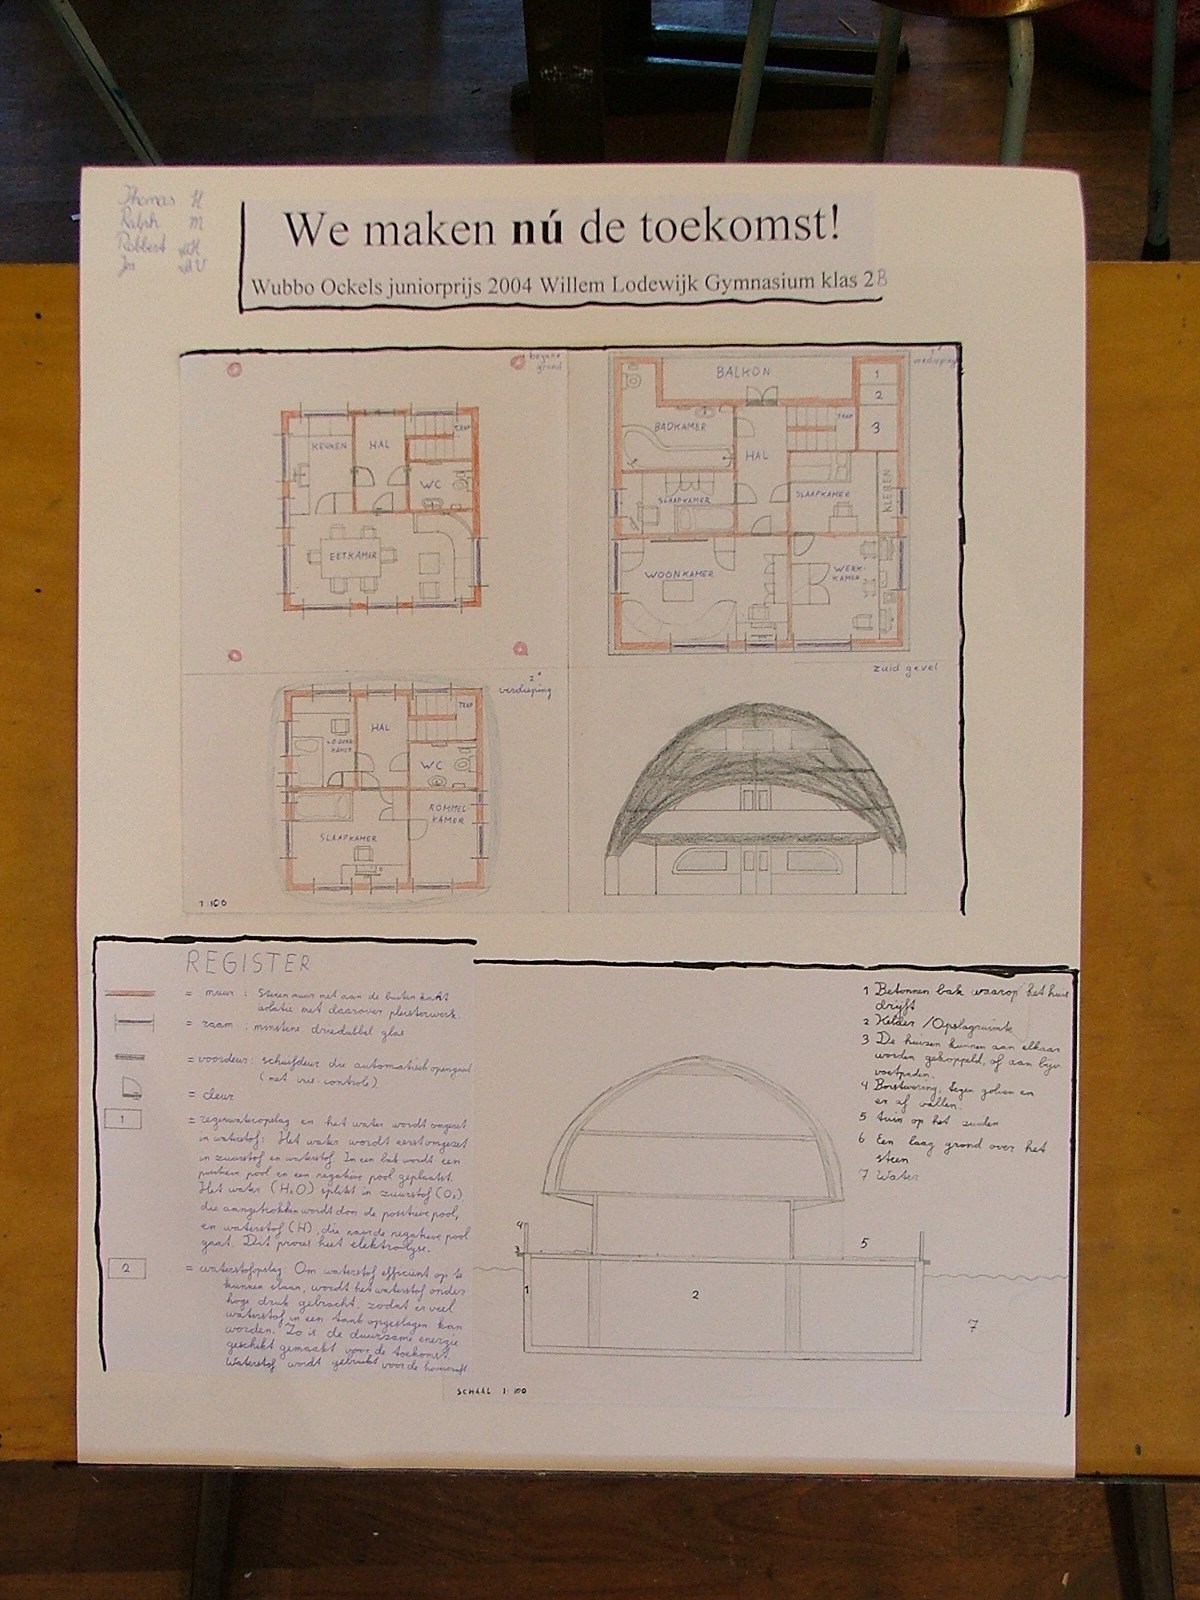 Thomas H
Ralph M
Robbert
Jos
We maken nú de toekomst!
Wubbo Ockels juniorprijs 2004 Willem Lodewijk Gymnasium klas 2B
begane
grond
KEUKEN
HAL
TRAP
WC
EETKAMER
1e
verdieping
BALKON
1
2
3
BADKAMER
HAL
TRAP
SLAAPKAMER
SLAAPKAMER
KLEREN
WOONKAMER
WERK-
KAMER
2e
verdieping
HAL
TRAP
KAMER
WC
SLAAPKAMER
ROMMEL
KAMER
1:100
zuid gevel
REGISTER
= muur : Stenen muur met aan de buiten kant
isolatie met daarover pleisterwerk.
= raam : minstens driedubbel glas
= voordeur: schuifdeur die automatisch opengaat
(met iris-controle)
= deur
1 = regenwateropslag en het water wordt omgezet
in waterstof: Het water wordt eerst omgezet
in zuurstof en waterstof. In een bak wordt een
positieve pool en een negatieve pool geplaatst.
Het water (H2O) splitst in zuurstof (O2),
die aangetrokken wordt door de positieve pool,
en waterstof (H), die naar de negatieve pool
gaat. Dit proces heet elektrolyse.
2 = waterstofopslag Om waterstof efficiënt op te
kunnen slaan, wordt het waterstof onder
hoge druk gebracht, zodat er veel
waterstof in een tank opgeslagen kan
worden. Zo is de duurzame energie
geschikt gemaakt voor de toekomst.
Waterstof wordt gebruikt voor de hovercraft.
1 Betonnen bak waarop het huis
drijft
2 Kelder / Opslagruimte
3 De huizen kunnen aan elkaar
worden gekoppeld, of aan bijv.
voetpaden.
4 Borstwering, tegen golven en
er af vallen.
5 tuin op het zuiden
6 Een laag grond over het
steen
7 Water
4
3
5
1
2
7
SCHAAL 1:100